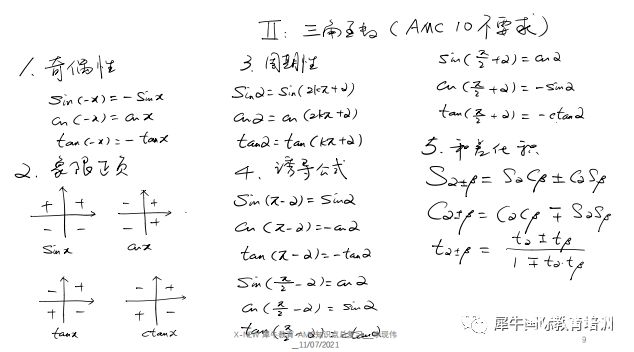 II: 三角函数 (AMC 10 不要求)
1. 奇偶性
sin(-x) = -sinx
cos(-x) = cosx
tan(-x) = -tanx
2. 象限正负
+ +
- -
sinx
- +
- +
cosx
- +
+ -
tanx
- +
+ -
ctanx
3. 周期性
sinα = sin(2kπ+α)
cosα = cos(2kπ+α)
tanα = tan(kπ+α)
4. 诱导公式
sin(π-α) = sinα
cos(π-α) = -cosα
tan(π-α) = -tanα
sin(π/2-α) = cosα
cos(π/2-α) = sinα
tan(π/2-α) = ctanα
sin(π/2+α) = cosα
cos(π/2+α) = -sinα
tan(π/2+α) = -ctanα
5. 和差化积
Sα±β = SαCβ ± CαSβ
Cα±β = CαCβ ∓ SαSβ
tα±β = (tα ± tβ)/(1 ∓ tα·tβ)
犀牛国际教育培训
11/07/2021
9